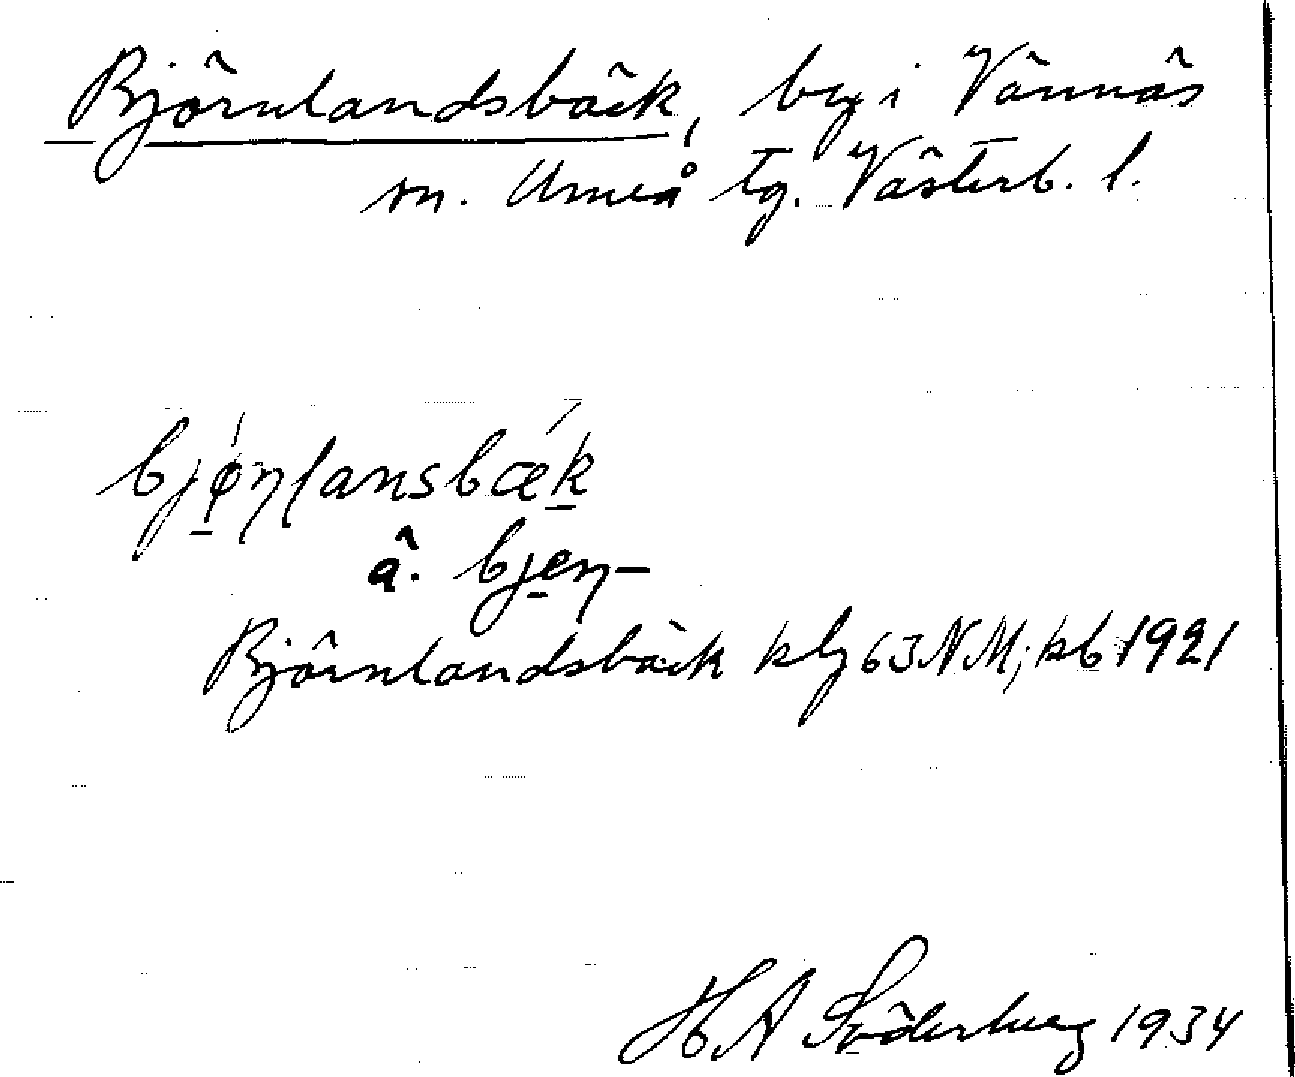 Björnlandsbäck, by i Vännäs
sn. Umeå tg. Västerb. l.
bjǿn̥lansbæ´k
ä. bjen-
Björnlandsbäck klg 63 NM; kb 1921
H A Söderberg 1934